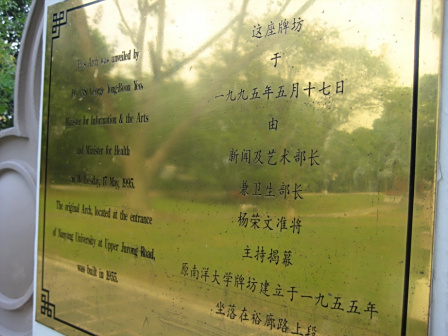 This Arch was unveiled by
George Yong-Boon Yeo
Minister for Information & the Arts
and Minister for Health
on Wednesday, 17 May, 1995.
The original Arch, located at the entrance
of Nanyang University at Upper Jurong Road,
was built in 1955.
这座牌坊
于
一九九五年五月十七日
由
新闻及艺术部长
兼卫生部长
杨荣文准将
主持揭幕
原南洋大学牌坊建立于一九五五年
坐落在裕廊路上段